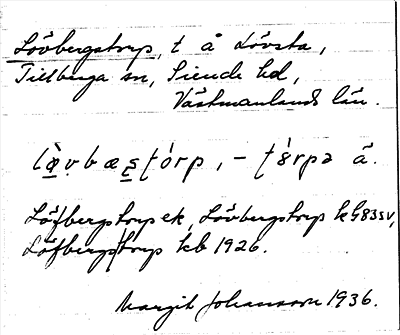 Lövbergstorp, t å Lövsta,
Tillberga sn, Siende hd,
Västmanlands län.
lø̀vbæʂt́orp, – t́orpə å.
Löfbergstorp ek, Lövbergstorp kG83SV,
Löfbergstorp kb 1926.
Margit Johansson 1936.